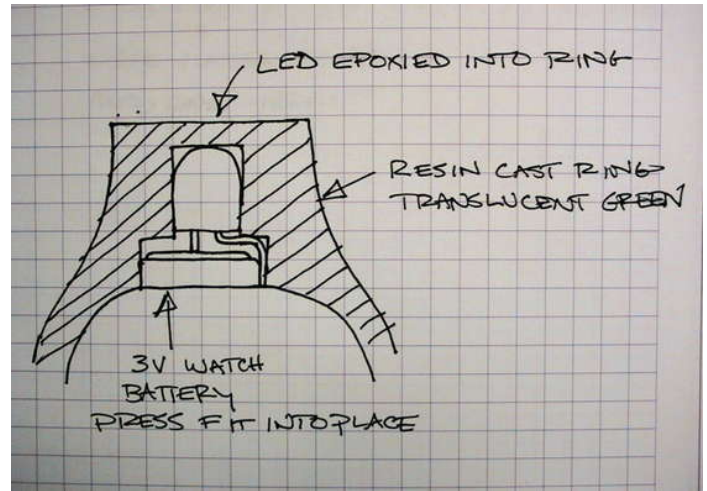 LED EPOXIED INTO RING
RESIN CAST RING
TRANSLUCENT GREEN
3V WATCH
BATTERY
PRESS FIT INTO PLACE